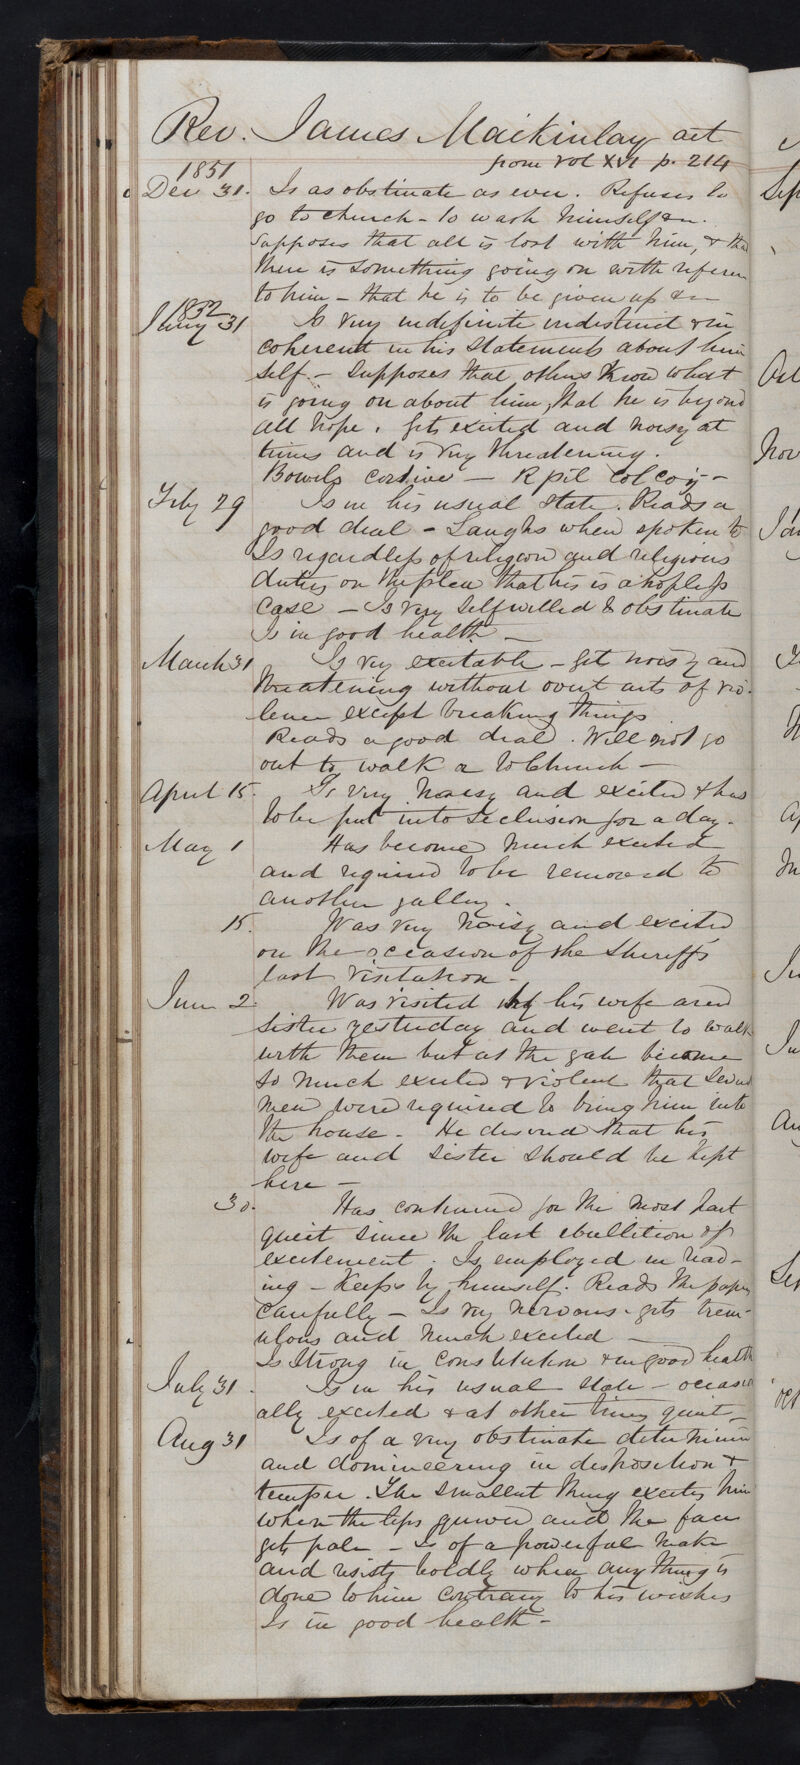 Rev. James Mackinlay aet
from vol XVI p. 214
1851
Dec 31. Is as obstinate as ever. Refuses to
go to church - to wash himself &c.
Supposes that all is lost with him, & tha
there is something going on with referen
to him - that he is to be given up &c
1852
Jany 31 Is very indefinite indistinct & in
coherent in his statements about him
self - Supposes that others know what
is going on about him, that he is beyond
all hope. Gets excited and noisy at
times and is very threatening.
Bowels costive - R pil Col co ij -
Feby 29 Is in his usual state. Reads a
good deal - Laughs when spoken to
Is regardless of religion and religious
duties on the plea that his is a hopeless
case - Is very selfwilled & obstinate
Is in good health -
March 31 Is very excitable - get noisy and
threatening without overt acts of vio-
lence except breaking things
Reads a good deal. Will not go
out to walk or to Church -
April 15. Is very noisy and excited & has
to be put into seclusion for a day.
May 1 Has become much excited
and required to be removed to
another gallery.
15. Was very noisy and excited
on the occasion of the Sheriff's
last visitation -
June 2. Was visited by his wife and
sister yesterday and went to walk
with them but at the gate became
so much excited & violent that several
men were required to bring him into
the house - He desired that his
wife and sister should be kept
here -
30. Has continued for the most part
quiet since the last ebullition of
excitement. Is employed in read-
ing - Keeps by himself. Reads the papers
carefully - Is very nervous - gets trem-
ulous and much excited -
Is strong in constitution & in good health
July 31. Is in his usual state - occasion
ally excited & at other times quiet -
Aug 31 Is of a very obstinate determined
and domineering in disposition &
temper. The smallest thing excites him
when the lips quiver and the face
gets pale - Is of a powerful make
and resists boldly when any thing is
done to him contrary to his wishes
Is in good health -